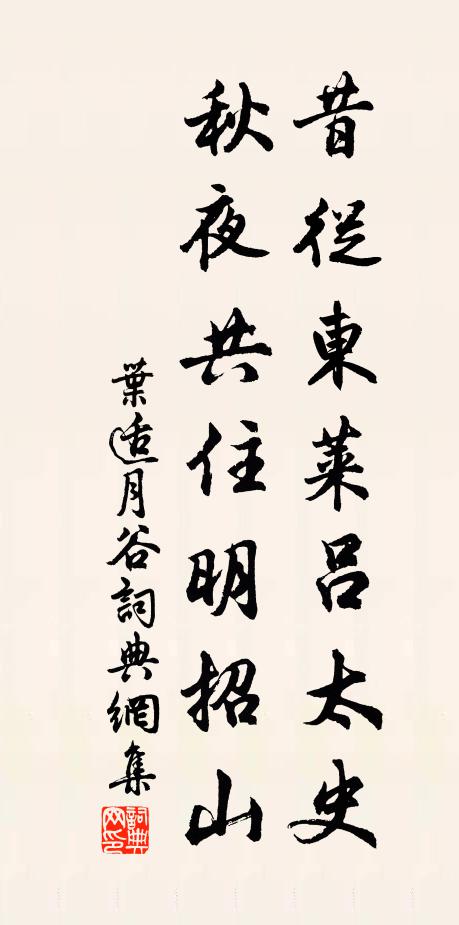 昔從東萊呂太史
秋夜共住明招山
葉适月谷詞典網集
詞典網印